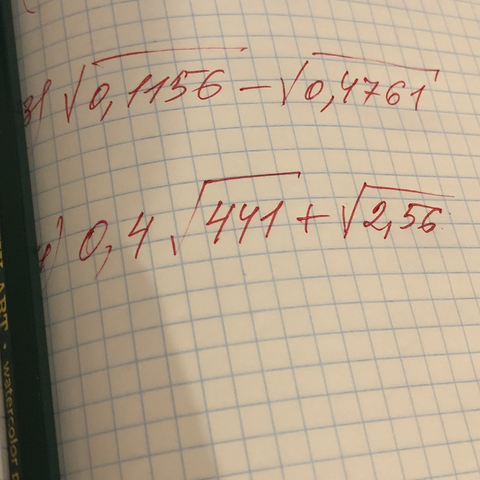 3) √0,1156 − √0,4761
4) 0,4 √441 + √2,56
ART · watercolor